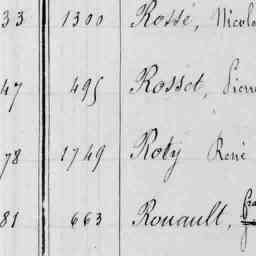 33 1300 Rossé, Nicola
47 495 Rosset, Pierre
78 1749 Roty René
81 663 Rouault,